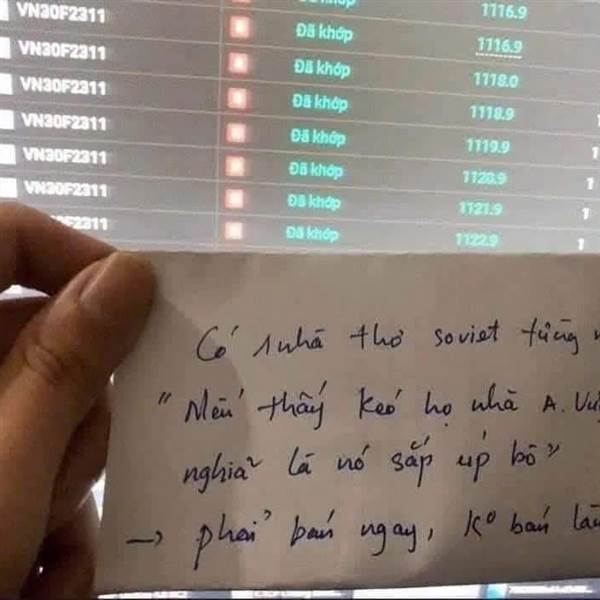 VN30F2311 Đã khớp 1116.9
VN30F2311 Đã khớp 1116.9
VN30F2311 Đã khớp 1118.0
VN30F2311 Đã khớp 1118.9
VN30F2311 Đã khớp 1119.9
VN30F2311 Đã khớp 1120.9 1
F2311 Đã khớp 1121.9 1
Đã khớp 1122.9 1
Có 1 nhà thơ soviet từng
"Nếu thấy kéo họ nhà A. Vư
nghĩa là nó sắp úp bô"
→ phải bán ngay, ko bán là